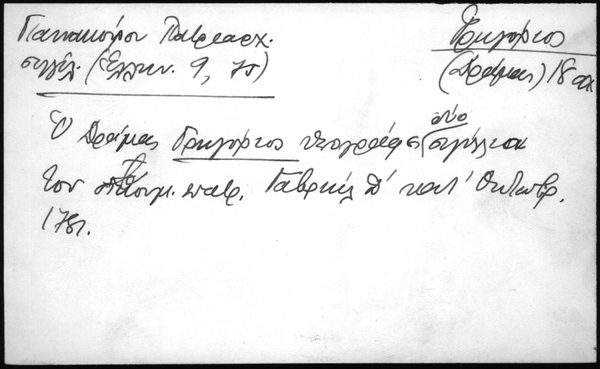 Παπακύρου Πατριαρχ.
σιγίλ. (Ἑλλην. 9, 75)
Γρηγόριος
(Δράμας) 18 αἰ
Ὁ Δράμας Γρηγόριος ὑπογράφει δύο σιγίλλια
τοῦ οἰκουμ. πατρ. Γαβριήλ Δ΄ κατ' Ὀκτωβρ.
178